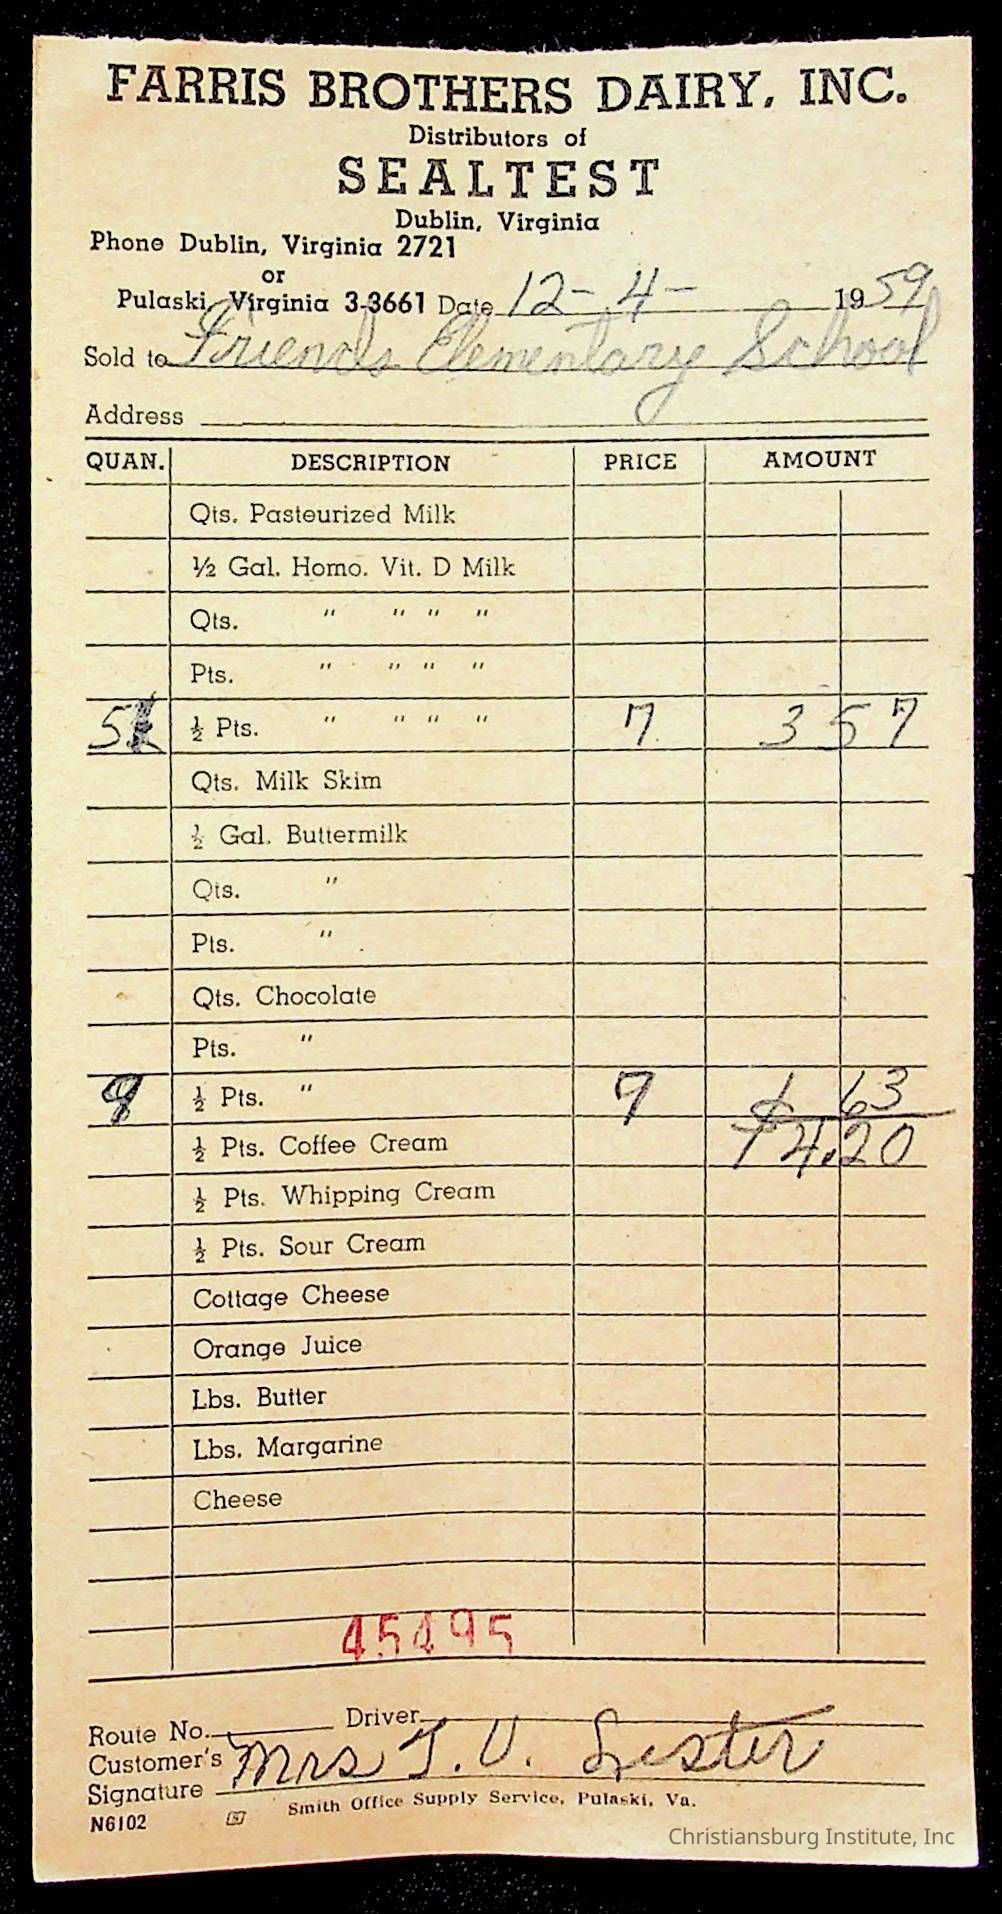 FARRIS BROTHERS DAIRY, INC.
Distributors of
SEALTEST
Dublin, Virginia
Phone Dublin, Virginia 2721
or
Pulaski, Virginia 3-3661 Date 12-4- 1959
Sold to Friends Elementary School
Address
QUAN. DESCRIPTION PRICE AMOUNT
Qts. Pasteurized Milk
½ Gal. Homo. Vit. D Milk
Qts. " " " "
Pts. " " " "
51 ½ Pts. " " " " 7 3 57
Qts. Milk Skim
½ Gal. Buttermilk
Qts. "
Pts. "
Qts. Chocolate
Pts. "
9 ½ Pts. " 7 63
½ Pts. Coffee Cream $4.20
½ Pts. Whipping Cream
½ Pts. Sour Cream
Cottage Cheese
Orange Juice
Lbs. Butter
Lbs. Margarine
Cheese
45495
Route No. Driver
Customer's
Signature Mrs T. V. Lester
N6102 Smith Office Supply Service, Pulaski, Va.
Christiansburg Institute, Inc